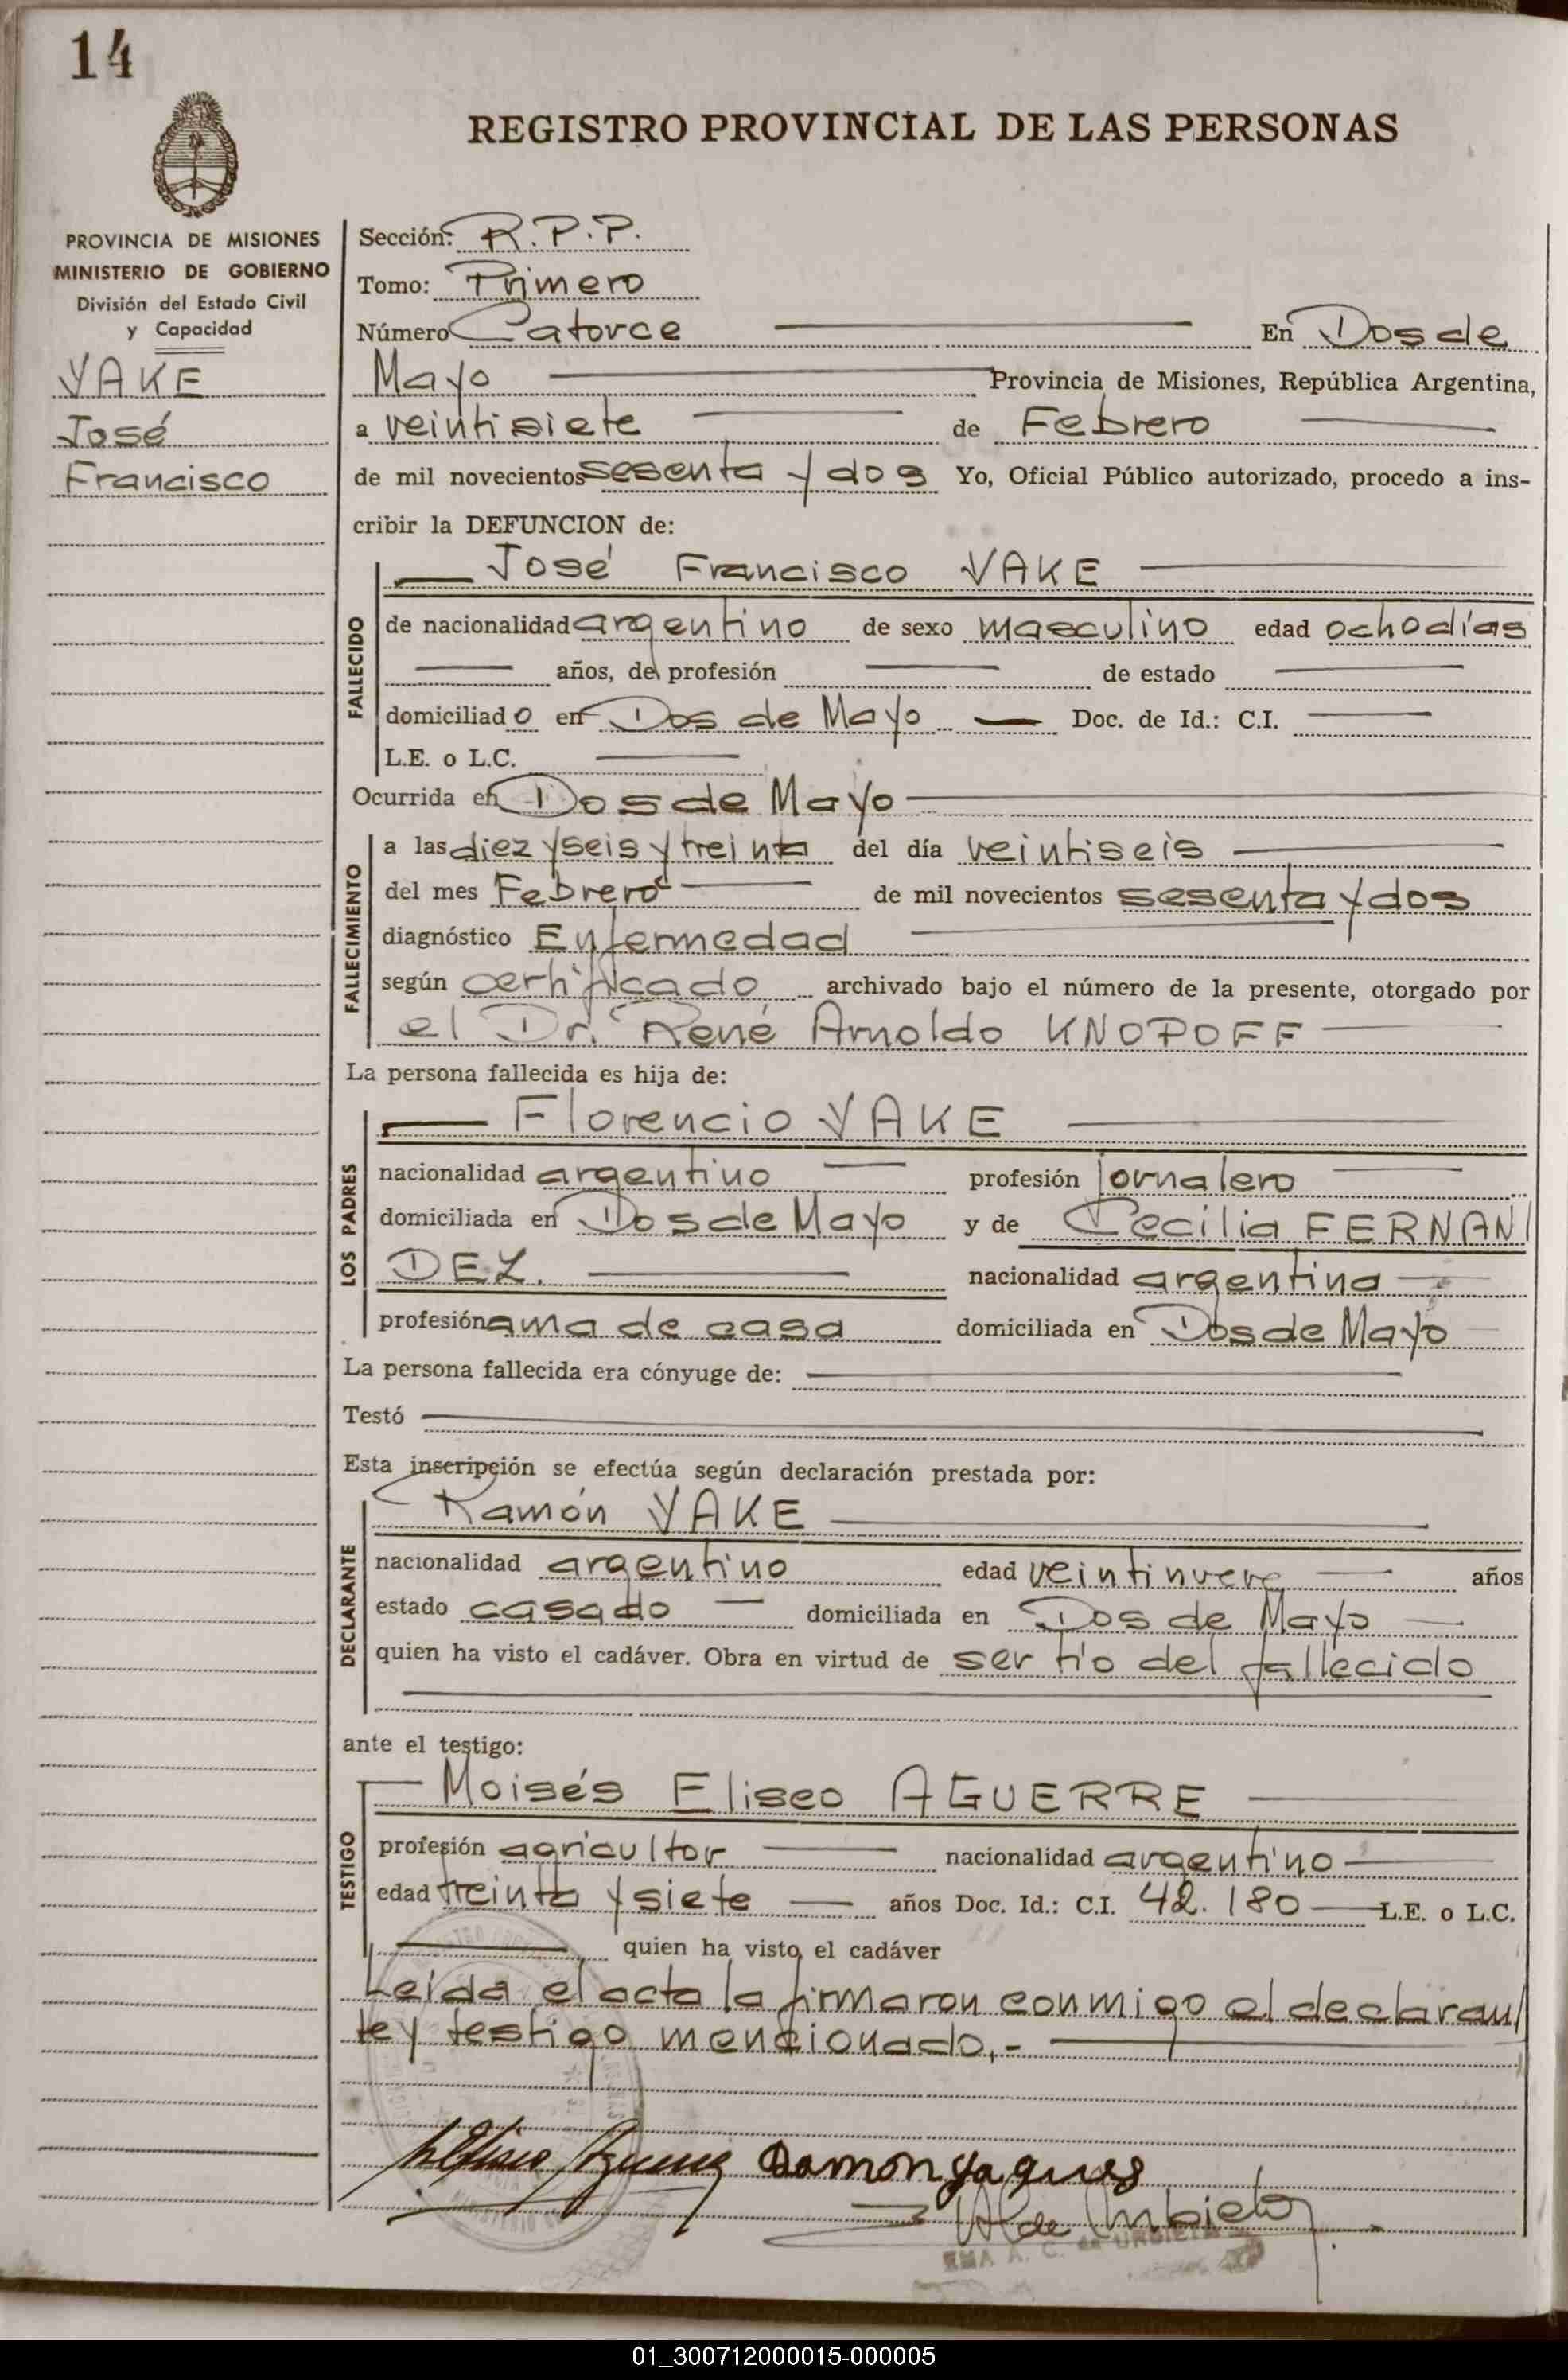 14
REGISTRO PROVINCIAL DE LAS PERSONAS
PROVINCIA DE MISIONES
MINISTERIO DE GOBIERNO
División del Estado Civil
y Capacidad
YAKE
José
Francisco
Sección: R.P.P.
Tomo: Primero
Número Catorce En Dos de
Mayo Provincia de Misiones, República Argentina,
a veintisiete de Febrero
de mil novecientos sesenta y dos Yo, Oficial Público autorizado, procedo a ins-
cribir la DEFUNCION de:
José Francisco YAKE
FALLECIDO
de nacionalidad argentino de sexo masculino edad ocho días
años, de profesión de estado
domiciliado en Dos de Mayo Doc. de Id.: C.I.
L.E. o L.C.
Ocurrida en Dos de Mayo
FALLECIMIENTO
a las diez y seis y treinta del día veintiseis
del mes Febrero de mil novecientos sesenta y dos
diagnóstico Enfermedad
según certificado archivado bajo el número de la presente, otorgado por
el Dr. René Arnoldo KNOPOFF
La persona fallecida es hija de:
LOS PADRES
Florencio YAKE
nacionalidad argentino profesión jornalero
domiciliada en Dos de Mayo y de Cecilia FERNAN
DEZ. nacionalidad argentina
profesión ama de casa domiciliada en Dos de Mayo
La persona fallecida era cónyuge de:
Testó
Esta inscripción se efectúa según declaración prestada por:
DECLARANTE
Ramón YAKE
nacionalidad argentino edad veintinueve años
estado casado domiciliada en Dos de Mayo
quien ha visto el cadáver. Obra en virtud de ser tío del fallecido
ante el testigo:
TESTIGO
Moisés Eliseo AGUERRE
profesión agricultor nacionalidad argentino
edad treinta y siete años Doc. Id.: C.I. 42.180 L.E. o L.C.
quien ha visto el cadáver
Leída el acta la firmaron conmigo el declaran
te y testigo mencionado.-
Damon
A. C. de URBIETA
01_300712000015-000005